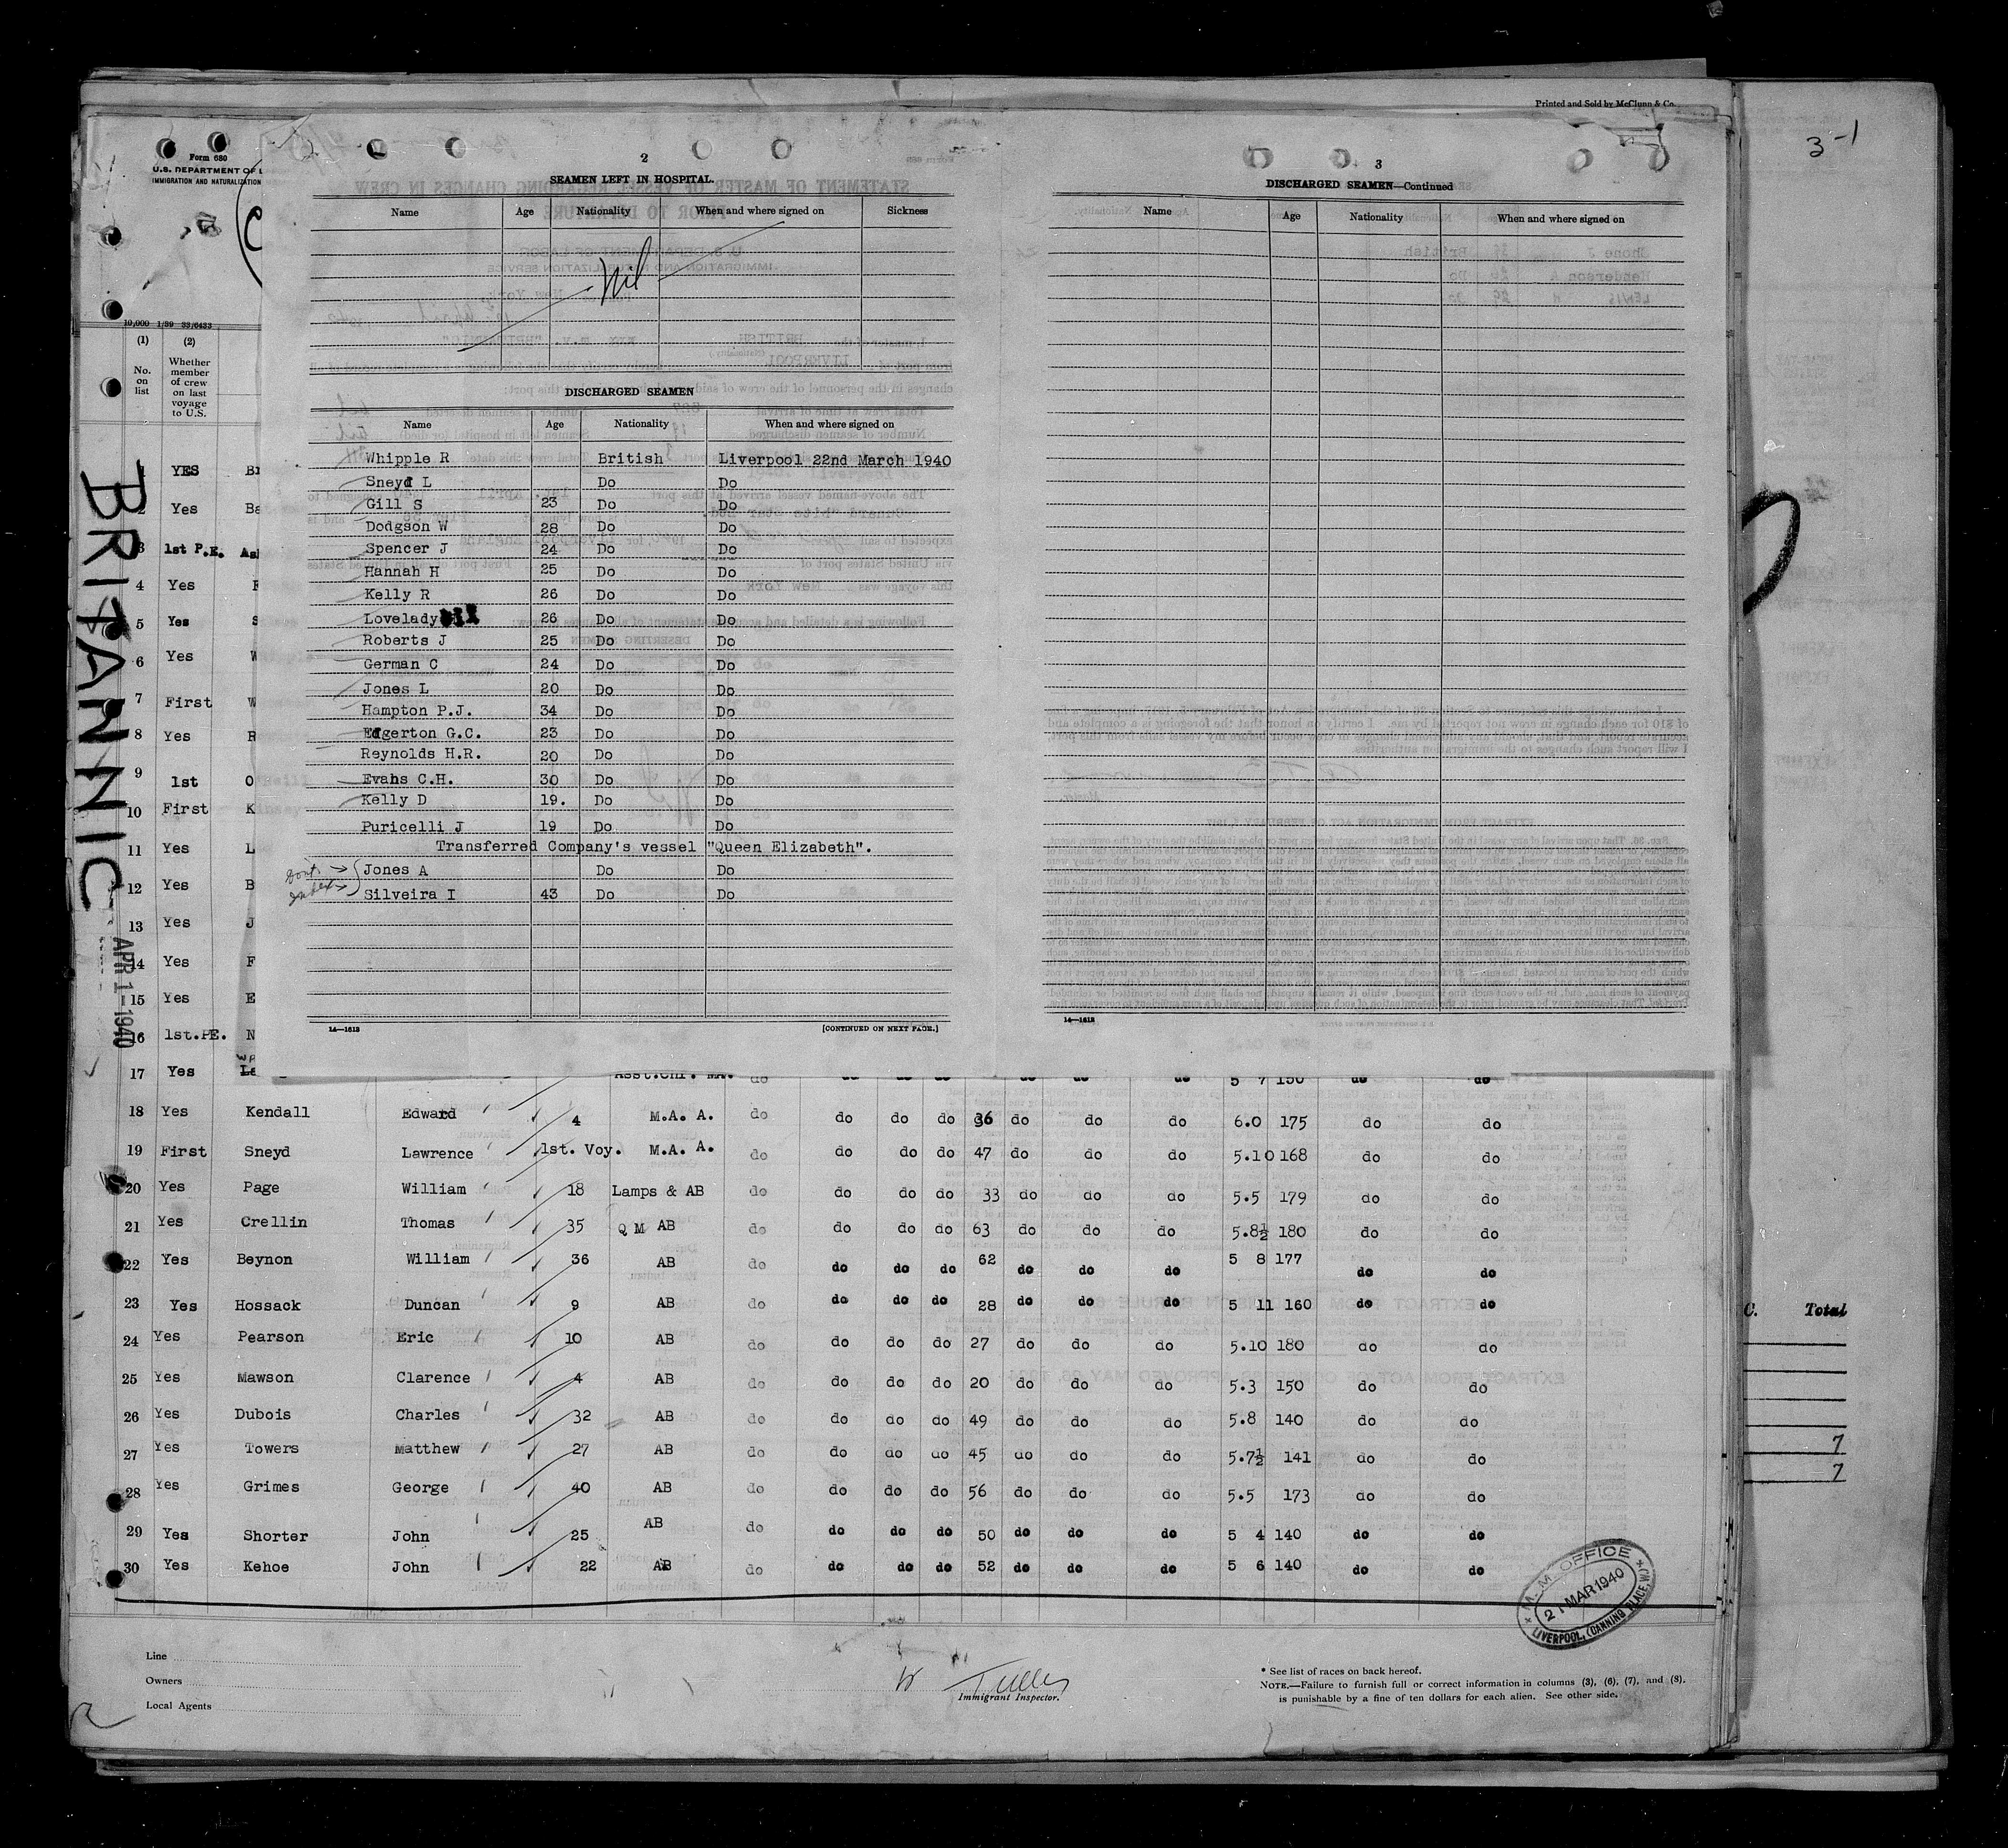 Printed and Sold by McClunn & Co.
3-1
Form 680
U.S. DEPARTMENT OF L
IMMIGRATION AND NATURALIZATION
10,000 1/39 33/6433
(1) (2)
No. on list
Whether member of crew on last voyage to U.S.
BRITANNIC
APR 1-1940
2
SEAMEN LEFT IN HOSPITAL.
Name Age Nationality When and where signed on Sickness
Nil
DISCHARGED SEAMEN
Name Age Nationality When and where signed on
Whipple R British Liverpool 22nd March 1940
Sneyd L Do Do
Gill S 23 Do Do
Dodgson W 28 Do Do
Spencer J 24 Do Do
Hannah H 25 Do Do
Kelly R 26 Do Do
Lovelady 26 Do Do
Roberts J 25 Do Do
German C 24 Do Do
Jones L 20 Do Do
Hampton P.J. 34 Do Do
Edgerton G.C. 23 Do Do
Reynolds H.R. 20 Do Do
Evans C.H. 30 Do Do
Kelly D 19. Do Do
Puricelli J 19 Do Do
Transferred Company's vessel "Queen Elizabeth".
Dont → Jones A Do Do
index → Silveira I 43 Do Do
14—1613 [CONTINUED ON NEXT PAGE.]
3
DISCHARGED SEAMEN—Continued
Name Age Nationality When and where signed on
14—1613
YES B
Yes Ba
3 1st P.E. As
4 Yes
5 Yes S
6 Yes W
7 First W
8 Yes R
9 1st O
10 First K
11 Yes L
12 Yes B
13 Yes J
14 Yes F
15 Yes E
16 1st.PE. N
17 Yes Asst.Chf. MA. do do do do do do do 5 7 150 do do
18 Yes Kendall Edward 4 M.A. A. do do do do 36 do do do 6.0 175 do do
19 First Sneyd Lawrence 1st. Voy. M.A. A. do do do do 47 do do do 5.10 168 do do
20 Yes Page William 18 Lamps & AB do do do do 33 do do do 5.5 179 do do
21 Yes Crellin Thomas 35 Q M AB do do do do 63 do do do 5.8½ 180 do do
22 Yes Beynon William 36 AB do do do do 62 do do do 5 8 177 do do
23 Yes Hossack Duncan 9 AB do do do do 28 do do do 5 11 160 do do
24 Yes Pearson Eric 10 AB do do do do 27 do do do 5.10 180 do do
25 Yes Mawson Clarence 4 AB do do do do 20 do do do 5.3 150 do do
26 Yes Dubois Charles 32 AB do do do do 49 do do do 5.8 140 do do
27 Yes Towers Matthew 27 AB do do do do 45 do do do 5.7½ 141 do do
28 Yes Grimes George 40 AB do do do do 56 do do do 5.5 173 do do
29 Yes Shorter John 25 AB do do do do 50 do do do 5 4 140 do do
30 Yes Kehoe John 22 AB do do do do 52 do do do 5 6 140 do do
C. Total
7
7
M.M. OFFICE
21 MAR 1940
LIVERPOOL, (CANNING PLACE, W.)
Line
Owners
Local Agents
Immigrant Inspector.
* See list of races on back hereof.
NOTE.—Failure to furnish full or correct information in columns (3), (6), (7), and (8), is punishable by a fine of ten dollars for each alien. See other side.